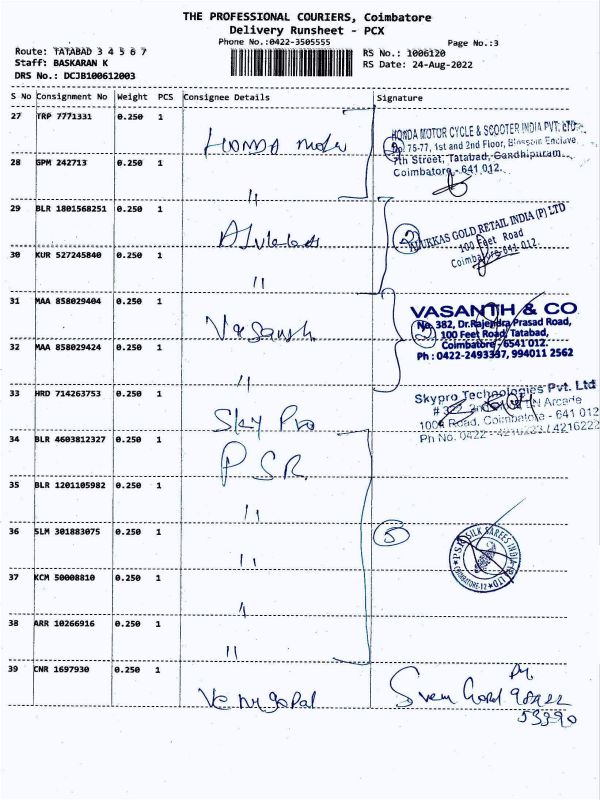 THE PROFESSIONAL COURIERS, Coimbatore
Delivery Runsheet - PCX
Phone No.:0422-3505555 Page No.:3
Route: TATABAD 3 4 5 6 7 RS No.: 1006120
Staff: BASKARAN K RS Date: 24-Aug-2022
DRS No.: DCJB100612003
S No Consignment No Weight PCS Consignee Details Signature
27 TRP 7771331 0.250 1 HONDA Motor
HONDA MOTOR CYCLE & SCOOTER INDIA PVT. LTD.
No. 75-77, 1st and 2nd Floor, Blossom Enclave,
7th Street, Tatabad, Gandhipuram,
Coimbatore - 641 012.
28 GPM 242713 0.250 1 "
29 BLR 1801568251 0.250 1
2 ALUKKAS GOLD RETAIL INDIA (P) LTD
100 Feet Road
Coimbatore-641 012.
30 KUR 527245840 0.250 1 "
31 MAA 858029404 0.250 1 Vasanth
VASANTH & CO
No. 382, Dr.Rajendra Prasad Road,
2 100 Feet Road, Tatabad,
Coimbatore - 6541 012.
Ph : 0422-2493337, 994011 2562
32 MAA 858029424 0.250 1 "
33 HRD 714263753 0.250 1 Sky Pro
Skypro Technologies Pvt. Ltd
Arcade
Road, Coimbatore - 641 012
Ph No: 0422 - 4216233 / 4216222
34 BLR 4603812327 0.250 1 PSR
35 BLR 1201105982 0.250 1 "
36 SLM 301883075 0.250 1 " 5
PSR SILK SAREES INDIA (P) LTD
COIMBATORE-12
37 KCM 50008810 0.250 1 "
38 ARR 10266916 0.250 1 "
39 CNR 1697930 0.250 1 Venugopal
53390